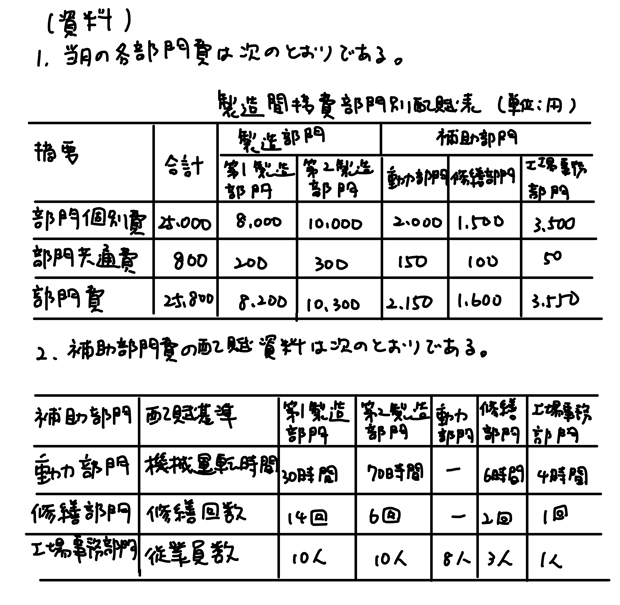 (資料)
1. 当月の各部門費は次のとおりである。
製造間接費部門別配賦表 (単位:円)
摘要 合計 製造部門 補助部門
第1製造部門 第2製造部門 動力部門 修繕部門 工場事務部門
部門個別費 25.000 8.000 10.000 2.000 1.500 3.500
部門共通費 800 200 300 150 100 50
部門費 25.800 8.200 10.300 2.150 1.600 3.550
2. 補助部門費の配賦資料は次のとおりである。
補助部門 配賦基準 第1製造部門 第2製造部門 動力部門 修繕部門 工場事務部門
動力部門 機械運転時間 30時間 70時間 - 6時間 4時間
修繕部門 修繕回数 14回 6回 - 2回 1回
工場事務部門 従業員数 10人 10人 8人 3人 1人